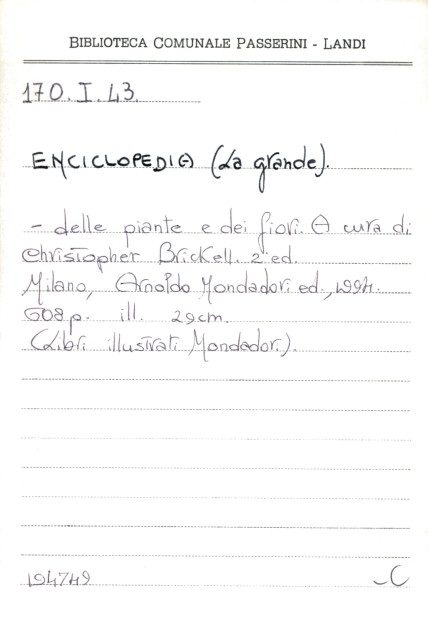 BIBLIOTECA COMUNALE PASSERINI - LANDI
170. I. 43.
ENCICLOPEDIA (La grande).
- delle piante e dei fiori. A cura di
Christopher Brickell. 2ª ed.
Milano, Arnoldo Mondadori ed., 1994.
608 p. ill. 29 cm.
(Libri illustrati Mondadori).
194749